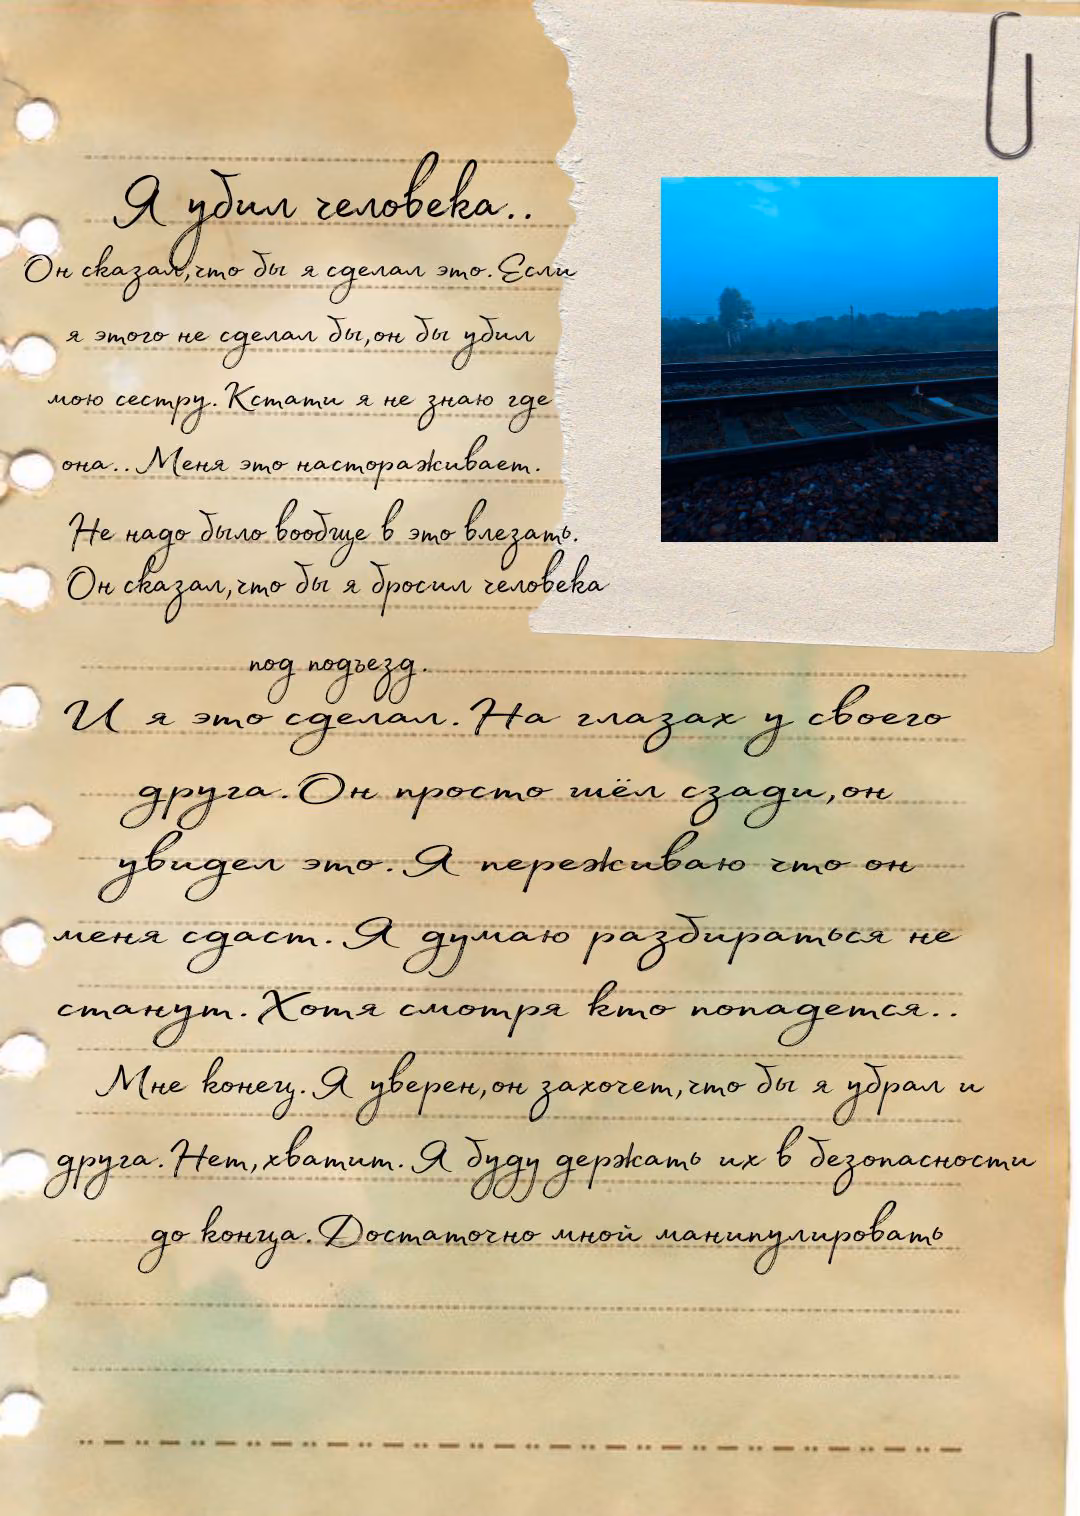 Я убил человека..
Он сказал,что бы я сделал это. Если
я этого не сделал бы,он бы убил
мою сестру. Кстати я не знаю где
она.. Меня это настораживает.
Не надо было вообще в это влезать.
Он сказал,что бы я бросил человека
под подъезд.
И я это сделал. На глазах у своего
друга. Он просто шёл сзади,он
увидел это. Я переживаю что он
меня сдаст. Я думаю разбираться не
станут. Хотя смотря кто попадется..
Мне конец. Я уверен,он захочет,что бы я убрал и
друга. Нет,хватит. Я буду держать их в безопасности
до конца. Достаточно мной манипулировать